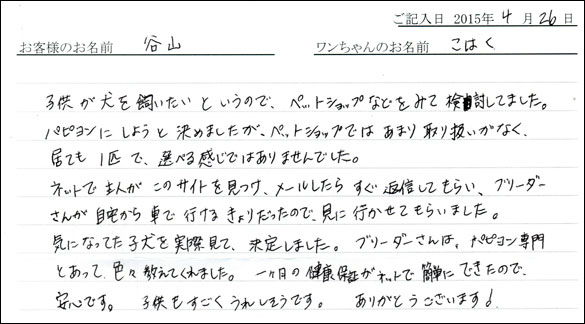 ご記入日 2015年 4 月 26 日
お客様のお名前 谷山 ワンちゃんのお名前 こはく
子供が犬を飼いたいというので、ペットショップなどをみて検討してました。
パピヨンにしようと決めましたが、ペットショップではあまり取り扱いがなく、
居ても1匹で、選べる感じではありませんでした。
ネットで主人がこのサイトを見つけ、メールしたらすぐ返信してもらい、ブリーダー
さんが自宅から車で行けるきょりだったので、見に行かせてもらいました。
気になってた子犬を実際見て、決定しました。ブリーダーさんは、パピヨン専門
とあって、色々教えてくれました。一ヶ月の健康保証がネットで簡単にできたので、
安心です。子供もすごくうれしそうです。ありがとうございます!